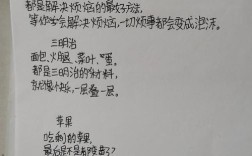 都是解决烦恼的最好方法,
等你学会解决烦恼,一切烦事都会变成泡沫。
三明治
面包、火腿、菜叶、蛋。
都是三明治的材料,
就像个快乐,一层叠一层。
苹果
吃剩的苹果,
最后是不是都浪费了?